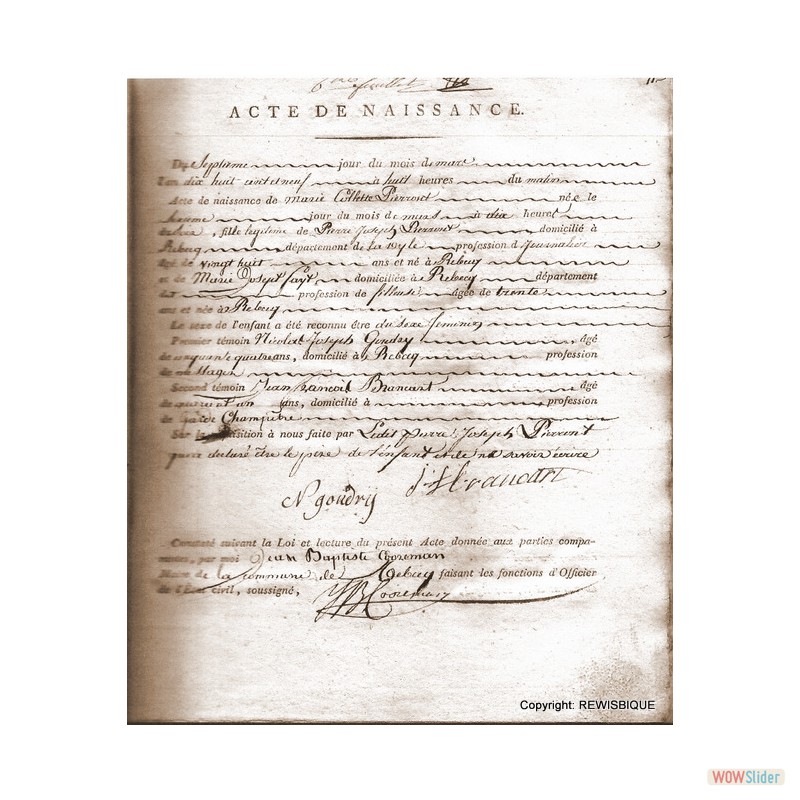 ACTE DE NAISSANCE.
Du Septième jour du mois de mars
l'an dix huit cent et neuf à huit heures du matin
Acte de naissance de Marie Collette Pierront née le
jour du mois de mars à dix heures
fille legitime de Pierre Joseph Pierront domicilié à
Rebecq département de La Dyle profession d Journalier
âgé de vingt huit ans et né à Rebecq
et de Marie Josept domiciliée à Rebecq département
profession de fileuse âgée de trente
ans et née à Rebecq
Le sexe de l'enfant a été reconnu être du sexe feminin
Premier témoin Nicolas Joseph Goudry, âgé
de cinquante quatre ans, domicilié à Rebecq profession
de
Second témoin Jean francois Brancart âgé
de quarent un ans, domicilié à profession
de Garde Champêtre
Sur la réquisition à nous faite par Ledit pierre Joseph Pierront
pour declaré être le père de l'enfant et de ne savoir écrire
N goudrij
j f brancart
Constaté suivant la Loi et lecture du présent Acte donnée aux parties compa-
rantes, par moi Jean Baptiste Cooreman
Maire de la commune de Rebecq faisant les fonctions d'Officier
de l'Etat civil, soussigné,
JB Cooreman
Copyright: REWISBIQUE
WOWSlider